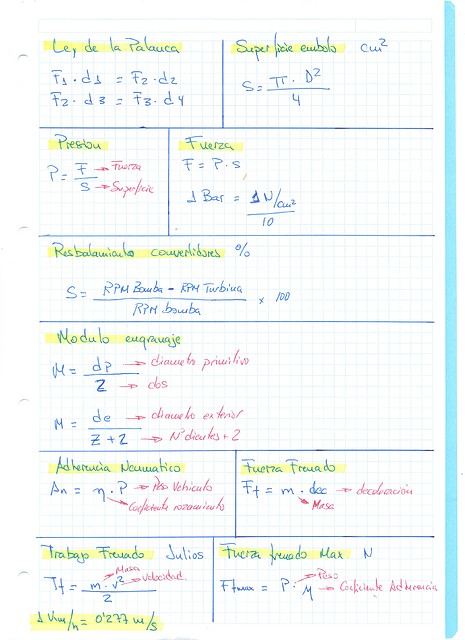 Ley de la Palanca
F1 · d1 = F2 · d2
F2 · d3 = F3 · d4
Superficie embolo cm²
S = π · D² / 4
Presion
P = F / S
→ Fuerza
→ Superficie
Fuerza
F = P · S
1 Bar = 1 N/cm² / 10
Resbalamiento convertidores %
S = RPM Bomba - RPM Turbina / RPM bomba × 100
Modulo engranaje
M = dp / Z
→ diametro primitivo
→ dos
M = de / Z + 2
→ diametro exterior
→ Nº dientes + 2
Adherencia Neumatico
An = η · P → Peso Vehiculo
Coeficiente rozamiento
Fuerza Frenado
Ff = m · dec → deceleración
Masa
Trabajo Frenado Julios
Masa
Tf = m · v² / 2 → velocidad
1 Km/h = 0'277 m/s
Fuerza frenado Max N
Peso
Ffmax = P · μ → Coeficiente Adherencia